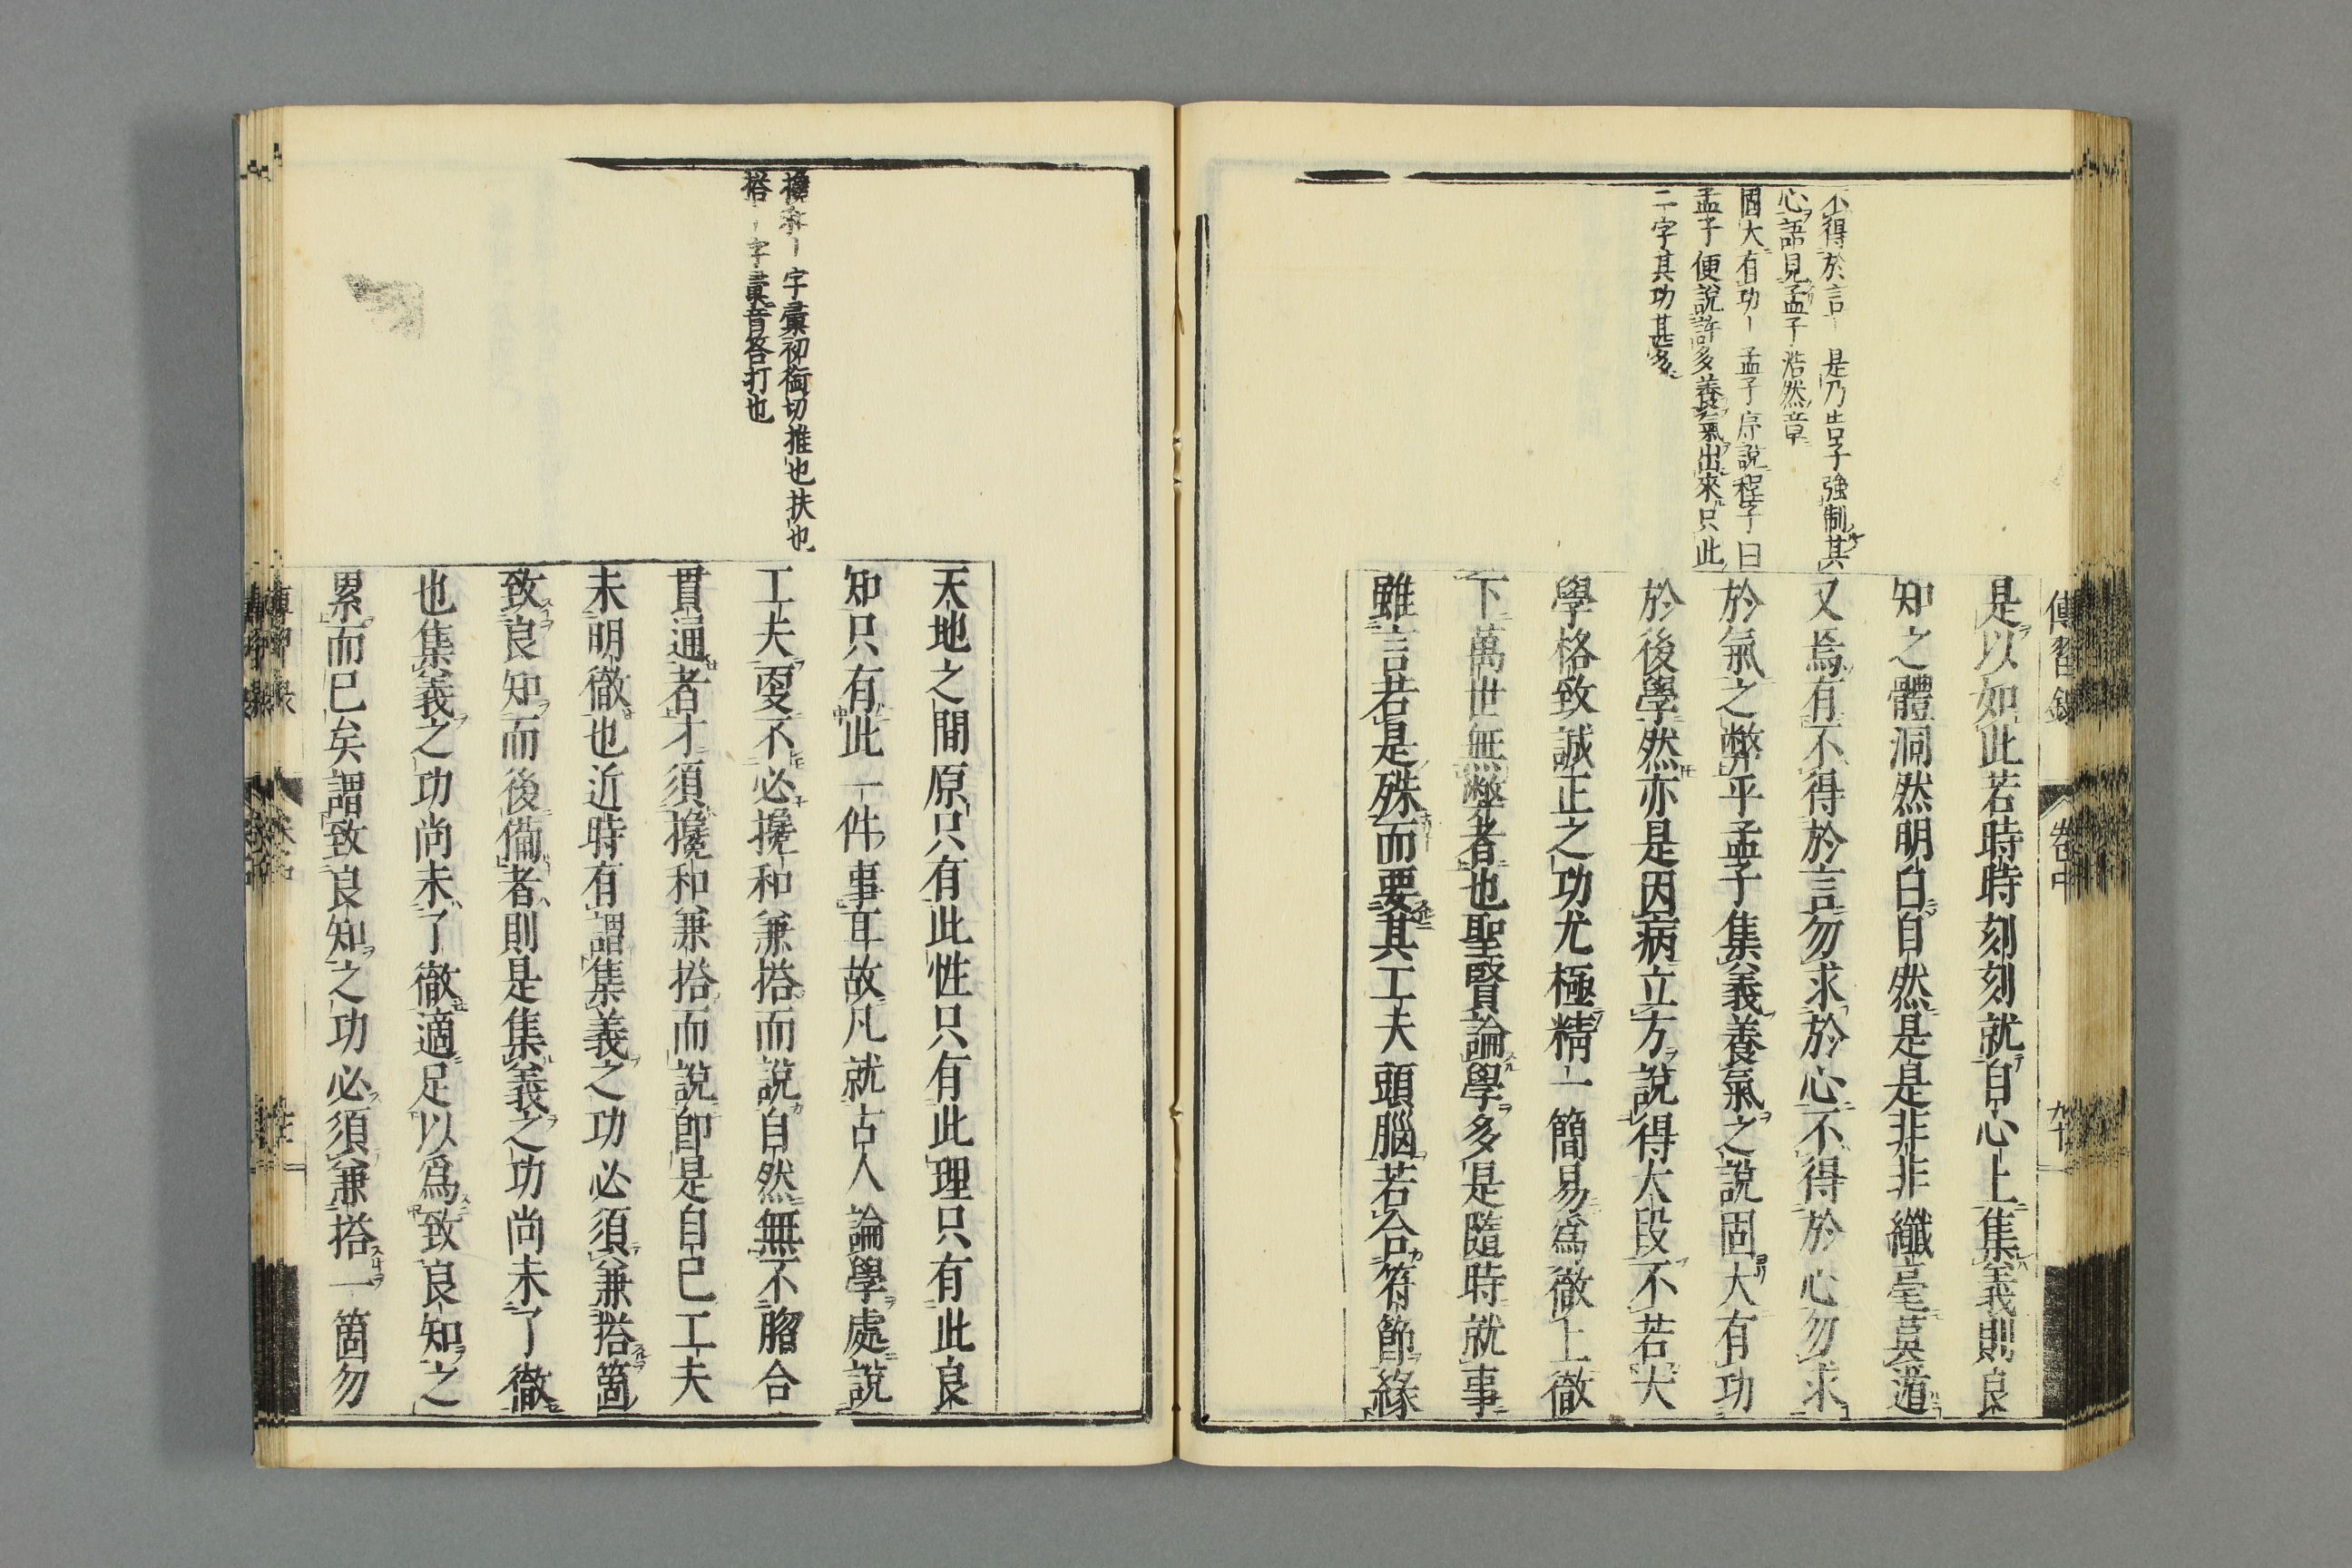 不得於言｜是乃告子強制其
心語見孟子浩然章
固大有功｜孟子序說程子曰
孟子便說許多養氣出來只此
二字其功甚多
傳習錄
卷中
是以如此若時時刻刻就自心上集義則良
知之體洞然明白自然是是非非纖毫莫遁
又焉有不得於言勿求於心不得於心勿求
於氣之弊乎孟子集義養氣之說固大有功
於後學然亦是因病立方說得大段不若大
學格致誠正之功尤極精一簡易爲徹上徹
下萬世無弊者也聖賢論學多是隨時就事
雖言若是殊而要其工夫頭腦若合符節緣
攙和｜字彙初銜切推也扶也
搭｜字彙音答打也
天地之間原只有此性只有此理只有此良
知只有此一件事耳故凡就古人論學處說
工夫更不必攙和兼搭而說自然無不脗合
貫通者才須攙和兼搭而說卽是自己工夫
未明徹也近時有謂集義之功必須兼搭箇
致良知而後備者則是集義之功尚未了徹
也集義之功尚未了徹適足以爲致良知之
累而已矣謂致良知之功必須兼搭一箇勿